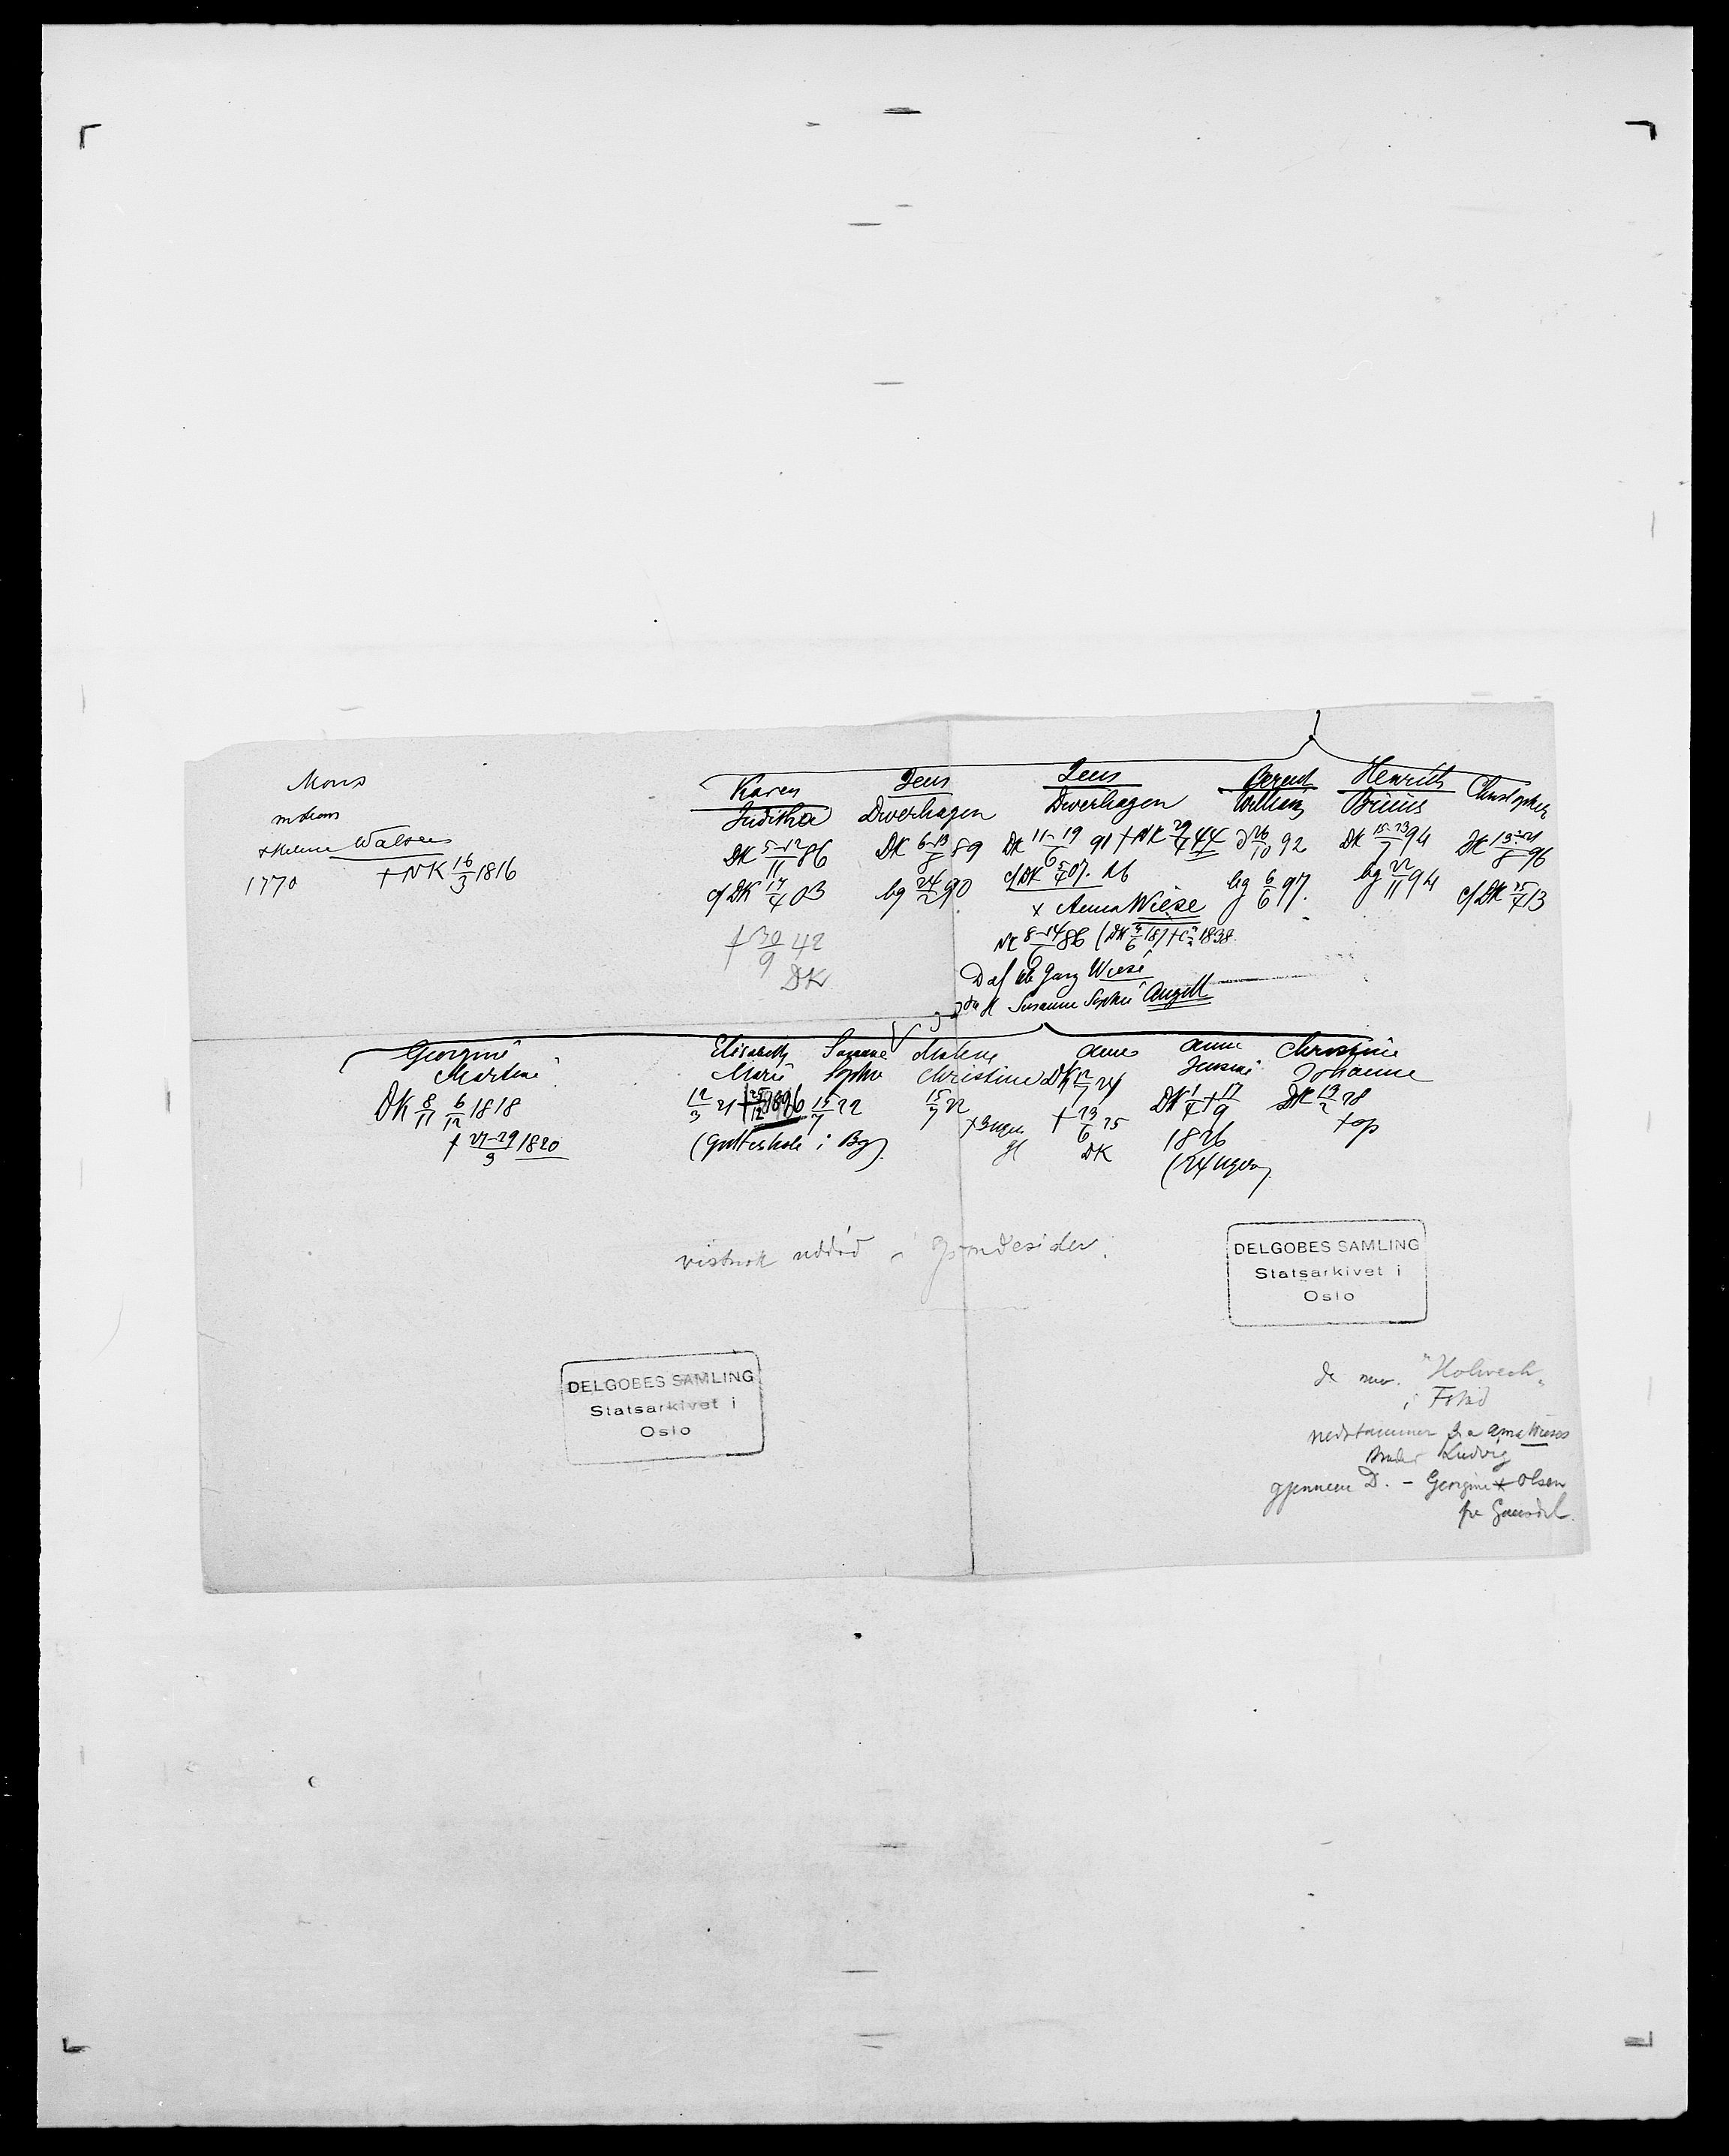 Mons
x Helene Walsen
1770 † NK 16/3 1816
Karen
Juditha
DK 5-12/11 86
c/ DK 17/4 03
† 30/9 42
DK
Jens
Dverhagen
DK 6-13/8 89
bg 24/2 90
Jens
Dverhagen
DK 11-19/6 91 † NK 29/4 44
c/ DK 5/4 07. 16
x Anna Wiese
NK 8-14/6 86
1838
D af Jørg Wiese
Susanne Sophie Angell
Berent
William
26/10 92
bg 6/6 97.
Henrich
Brinus
DK 15-23/7 94
bg 22/11 94
Christopher
13-21/8 96
c/ DK 25/4 13
Georgine
Martine
DK 8/11 6/12 1818
† 27-29/3 1820
Elisabeth
Marie
12/3 21 † 25/12 1896
(Gutteskole i Bg)
Susanne
Sophie
15/7 22
Malene
Christine
15/7 22
† 3 uger
gl
Anne
DK 12/7 24
† 23/6 25
DK
Anne
Jensine
DK 1/4 † 17/9
1826
(24 uger)
Christine
Johanne
DK 13/2 28
† op
vistnok uddød i
DELGOBES SAMLING
Statsarkivet i
Oslo
DELGOBES SAMLING
Statsarkivet i
Oslo
de nuv. "Holwech"
i
nedstammer fra Anna Wieses
Broder Ludvig
gjennem D. - Georgine x Olsen
fra Gausdal.